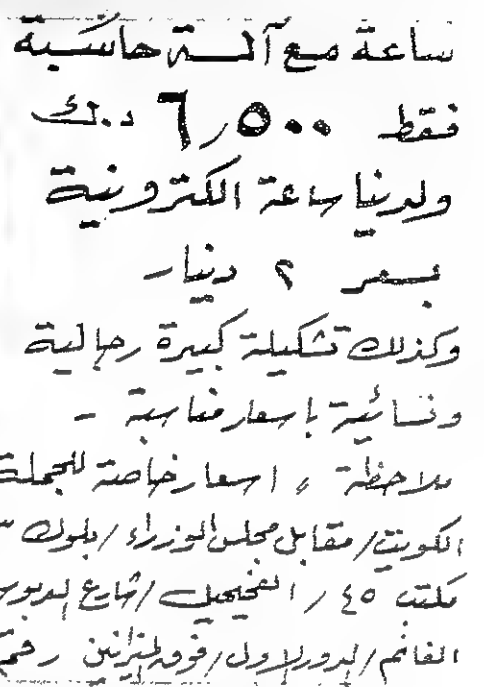 ساعة مع آلة حاسبة
فقط ٦٫٥٠٠ د.ك
ولدينا ساعة الكترونية
بسعر ٢ دينار
وكذلك تشكيلة كبيرة رجالية
ونسائية باسعار مناسبة -
ملاحظة ، اسعار خاصة للجملة
الكويت/ مقابل مجلس الوزراء / بلوك
مكتب ٤٥ / الفحيحيل / شارع الدبوس
الغانم / الدور الاول / فوق